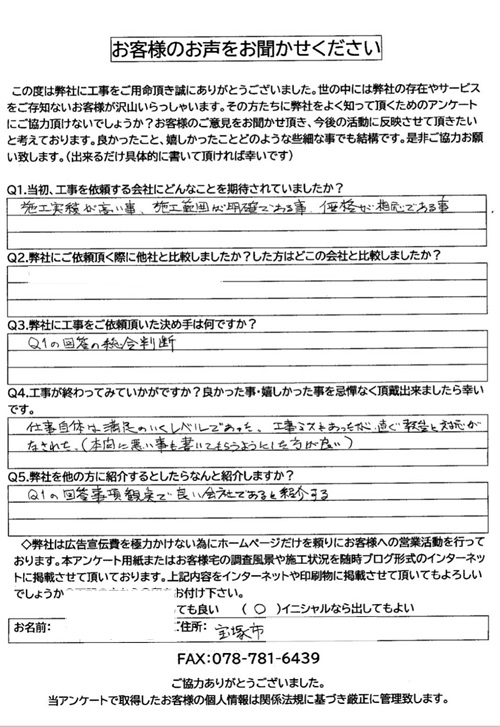 お客様のお声をお聞かせください
この度は弊社に工事をご用命頂き誠にありがとうございました。世の中には弊社の存在やサービス
をご存知ないお客様が沢山いらっしゃいます。その方たちに弊社をよく知って頂くためのアンケート
にご協力頂けないでしょうか？お客様のご意見をお聞かせ頂き、今後の活動に反映させて頂きたい
と考えております。良かったこと、嬉しかったことどのような些細な事でも結構です。是非ご協力お願
い致します。（出来るだけ具体的に書いて頂ければ幸いです）
Q1.当初、工事を依頼する会社にどんなことを期待されていましたか？
施工実績が高い事、施工範囲が明確である事、価格が相応である事
Q2.弊社にご依頼頂く際に他社と比較しましたか？した方はどこの会社と比較しましたか？
Q3.弊社に工事をご依頼頂いた決め手は何ですか？
Q1の回答の総合判断
Q4.工事が終わってみていかがですか？良かった事・嬉しかった事を忌憚なく頂戴出来ましたら幸い
です。
仕事自体は満足のいくレベルであった、工事ミスもあったが、直ぐ報告と対応が
なされた。（本向に悪い事も書いてもらうようにした方が良い）
Q5.弊社を他の方に紹介するとしたらなんと紹介しますか？
Q1の回答事項観点で良い会社であると紹介する
◇弊社は広告宣伝費を極力かけない為にホームページだけを頼りにお客様への営業活動を行って
おります。本アンケート用紙またはお客様宅の調査風景や施工状況を随時ブログ形式のインターネッ
トに掲載させて頂いております。上記内容をインターネットや印刷物に掲載させて頂いてもよろしい
でしょうか お付け下さい。
ても良い （ ○ ）イニシャルなら出してもよい
お名前： ご住所： 宝塚市
FAX：078-781-6439
ご協力ありがとうございました。
当アンケートで取得したお客様の個人情報は関係法規に基づき厳正に管理致します。